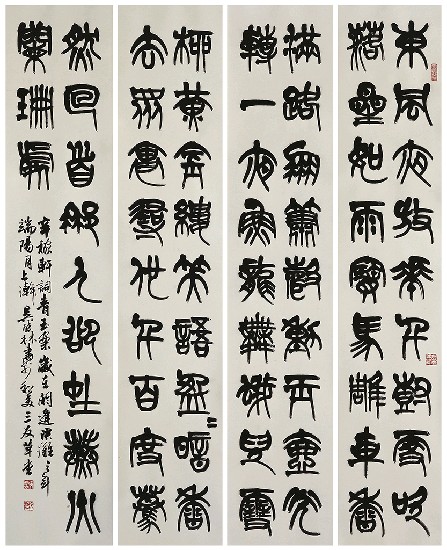 東風夜放花千樹更吹
落星如雨寶馬雕車香
滿路鳳簫聲動玉壺光
轉一夜魚龍舞蛾兒雪
柳黃金縷笑語盈〻暗香
去眾裏尋他千百度驀
然回首那人卻在燈火
闌珊處
辛稼軒詞青玉案歲在閼逢涒灘之年
端陽月上澣 三友草堂